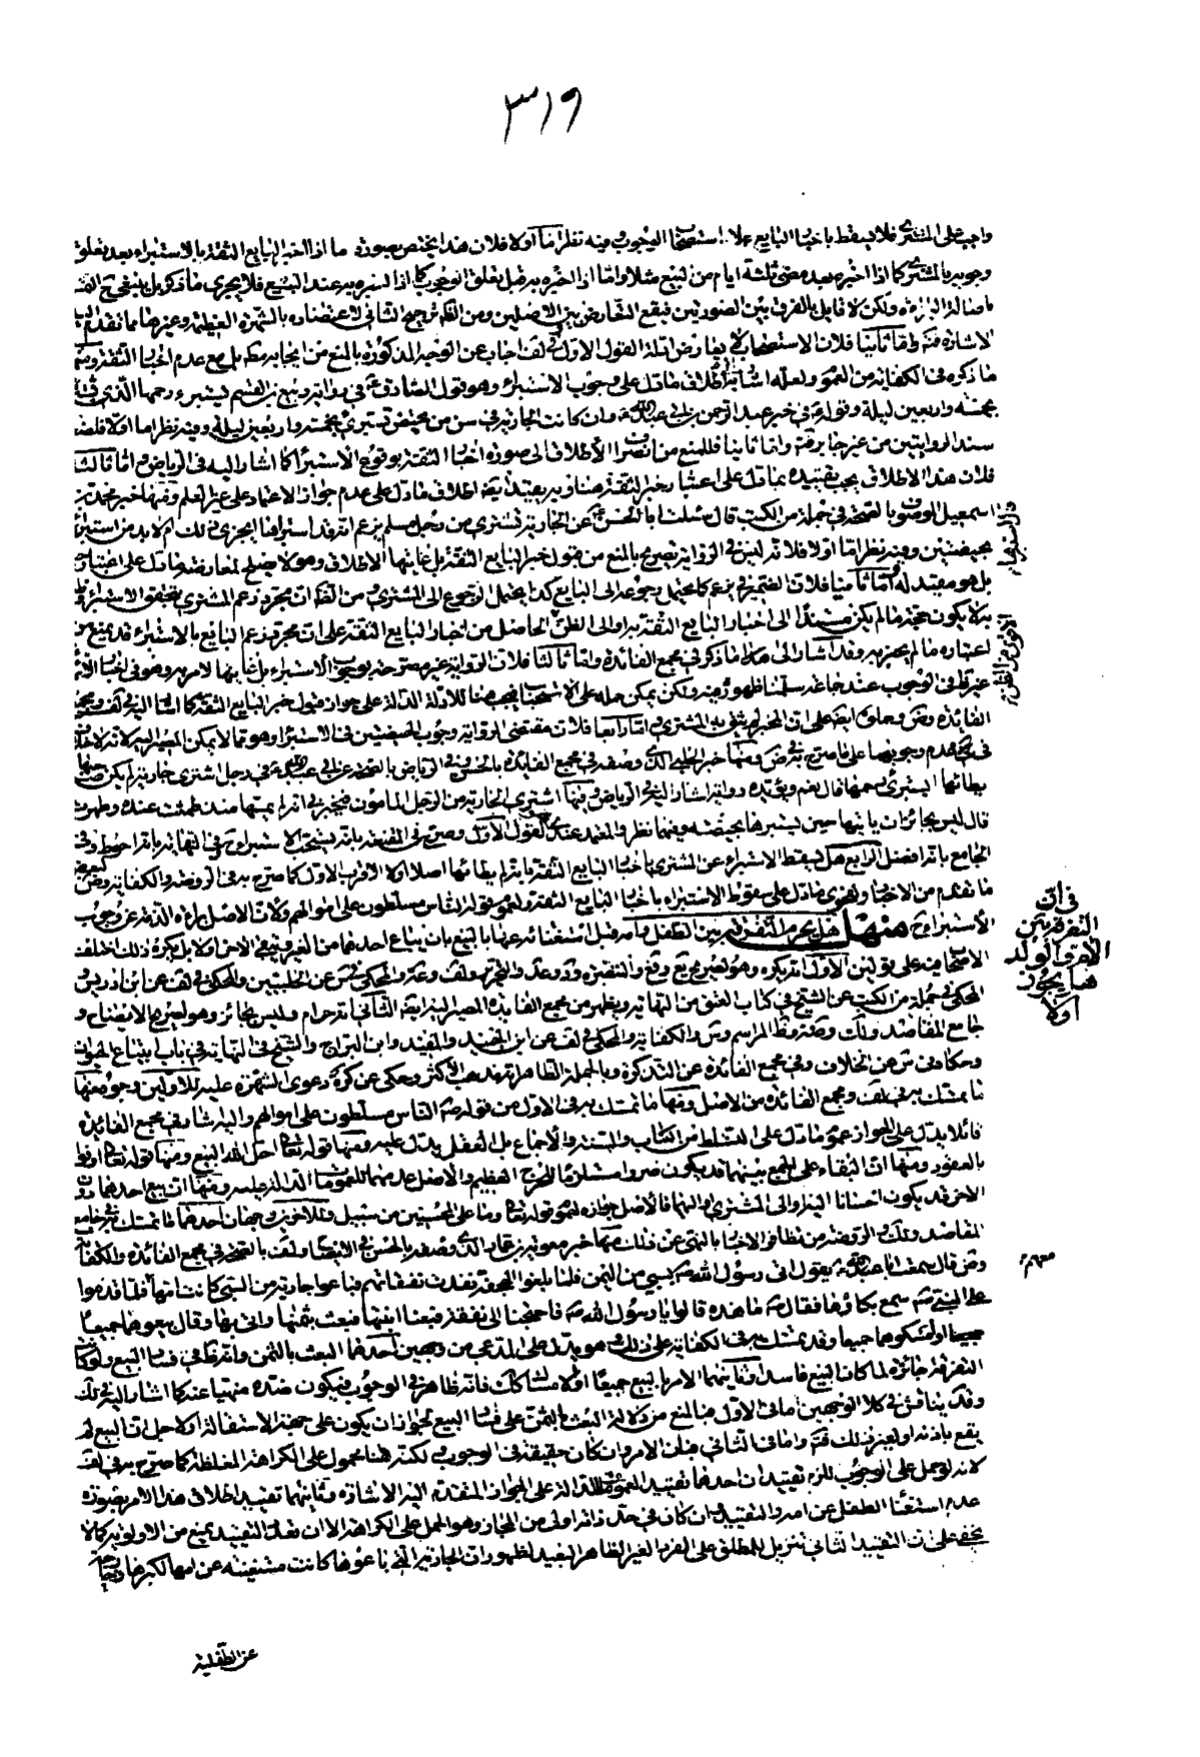 ٣١٩
واجب على المشتري فلا يسقط باخبار البايع عملا باستصحاب الوجوب وفيه نظر اما اولا فلان هذا يختص بصورة ما اذا اخبر البايع الثقة بالاستبراء بعد تعلق
وجوبه بالمشتري كما اذا اخبر بعد مضي ثلثة ايام من البيع مثلا واما اذا اخبره به قبل تعلق الوجوب كما اذا اخبره به عند البيع فلا يجري ما ذكر بل ينبغي ح
باصالة البراءة ولكن لا قايل بالفرق بين الصورتين فيقع التعارض بين الاصلين ومن الظاهر ترجيح الثاني لاعتضاده بالشهرة العظيمة وغيرها مما تقدم اليه
الاشارة فتم واما ثانيا فلان الاستصحاب لا يعارض ادلة القول الاول وفي لف اجاب عن الوجه المذكورة بالمنع من ايجابه مطلقا بل مع عدم اخبار الثقة
ما ذكره في الكفاية من العمو ولعله اشار الى اطلاق ما دل على وجوب الاستبراء وهو قول الصادق ع في رواية ربيع بن القسم يستبرء رحمها الذي
بخمسة واربعين ليلة وقوله ع في خبر عبد الرحمن بن ابي عبد الله وان كانت الجارية في سن من تحيض تستبرئ بخمسة واربعين ليلة وفيه نظر اما اولا فلضعف
سند الروايتين من غير جابر فتم واما ثانيا فللمنع من انصراف الاطلاق الى صورة اخبار الثقة بوقوع الاستبراء كما اشار اليه في الرياض واما ثالثا
فلان هذا الاطلاق يجب تقييده بما دل على اعتبار خبر الثقة هنا وبه يقيد ايضا اطلاق ما دل على عدم جواز الاعتماد على غير العلم ومنها خبر محمد بن
اسمعيل الموصوف بالصحة في جملة من الكتب قال سئلت ابا الحسن ع عن الجارية تشترى من رجل مسلم يزعم انه قد استبرأها ايجزي ذلك ام لا بد من استبرائها
بحيضتين وفيه نظر اما اولا فلانه ليس في الرواية تصريح بالمنع من قبول خبر البايع الثقة بل غايتها الاطلاق وهو لا يصلح لمعارضة ما دل على اعتباره
بل هو مقيد له واما ثانيا فلان الضمير في يزعم كما يحتمل رجوعه الى البايع كذا يحتمل الرجوع الى المشتري ومن الظ ان مجرد زعم المشتري تحقق الاستبراء
لا يكون حجة ما لم يكن مستندا الى اخبار البايع الثقة به او الى الظن الحاصل من اخبار البايع الثقة على ان مجرد زعم البايع بالاستبراء قد يمنع من
اعتباره ما لم يخبر به وقد اشار الى هذا ما ذكر في مجمع الفائدة واما ثالثا فلان الرواية غير مصرحة بوجوب الاستبراء بل غايتها لامر به وهو في اخبار الائمة
غير ظ في الوجوب عند جماعة سلمنا ظهوره فيه ولكن يمكن حمله على الاستحباب جمعا للادلة الدالة على جواز قبول خبر البايع الثقة كما اشار اليه في لف ومجمع
الفائدة وض وحملوه ايضا على ان المخبر لم يثق به المشتري واما رابعا فلان مقتضى الرواية وجوب الحيضتين في الاستبراء وهو مما لا يمكن المصير اليه لانه لا خلاف
في عدم وجوبها على ما صرح به في ض ومنها خبر الحلبي الذي وصفه في مجمع الفائدة بالحسن وفي الرياض بالصحة عن ابي عبد الله ع في رجل اشترى جارية لم يكن صاحبها
يطائها ايستبرئ رحمها قال نعم ويؤيده رواية اشار اليه في الرياض وفيها اشتري الجارية من الرجل المامون فيخبرني انه لم يمسها منذ طمثت عنده وطهرت
قال ليس بجائز ان ياتيها حين يستبرها بحيضة وفيهما نظر والمعتمد عندي القول الاول وصرح في المقنعة بانه يستحب الاستبراء ح وفي النهاية بانه احوط وفي
الجامع بانه افضل الرابع هل يسقط الاستبراء عن المشتري باخبار البايع الثقة بانه لم يطائها اصلا او لا الاقرب الاول كما صرح به في الروضة والكفاية وض لبعض
ما تقدم من الاخبار ولفحوى ما دل على سقوط الاستبراء باخبار البايع الثقة ولعموم قوله ص الناس مسلطون على اموالهم ولان الاصل براءة الذمة عن وجوب
الاستبراء ح منها هل يحرم التفرقة بين الطفل وامه قبل استغنائه عنها بالبيع بان يباع احدهما من الغير ويبقى الاخر او لا بل يكره ذلك اختلف
الاصحاب على قولين الاول انه يكره وهو لصريح
المحكي في جملة من الكتب عن الشيخ في كتاب العتق من النهاية ويظهر من مجمع الفايدة المصير اليه ايضا الثاني انه حرام وليس بجائز وهو لصريح الايضاح و
جامع المقاصد ولك وصه وظ المراسم وس والكفاية والمحكي في لف عن ابن الجنيد والمفيد وابن البراج والشيخ في النهاية في باب ابتياع الحيوان
وحكاه في س عن الخلاف وفي مجمع الفائدة عن التذكرة وبالجملة الظاهر انه مذهب الاكثر وحكى عن كره دعوى الشهرة عليه للاولين وجوه منها
ما تمسك به في لف ومجمع الفائدة من الاصل ومنها ما تمسك به في الاول من قوله ص الناس مسلطون على اموالهم واليه اشار في مجمع الفائدة
قائلا يدل على الجواز عمو ما دل على التسلط من الكتاب والسنة والاجماع بل العقل يدل عليه ومنها قوله تعالى احل الله البيع ومنها قوله تعالى اوفوا
بالعقود ومنها ان البقاء على الجمع بينهما قد يكون ضررا مستلزما للحرج العظيم والاصل عدمهما للعمومات الدالة عليه ومنها ان بيع احدهما دون
الاخر قد يكون احسانا اليه او الى المشتري او اليهما فالاصل جوازه لعموم قوله تعالى وما على المحسنين من سبيل وللاخرين وجهان احدهما ما تمسك به في جامع
المقاصد ولك والروضة من تظافر الاخبار بالنهي عن ذلك منها خبر معوية بن عمار الذي وصفه بالحسن في الايضاح ولف بالصحة في مجمع الفائدة والكفاية
وض قال سمعت ابا عبد الله ع يقول اتي رسول الله ص بسبي من اليمن فلما بلغوا الجحفة نفدت نفقاتهم فباعوا جارية من السبي كانت امها معهم فلما قدموا
على النبي ص سمع بكاؤها فقال ص ما هذه قالوا يا رسول الله ص احتجنا الى نفقة فبعنا ابنتها فبعث بثمنها واتي بها وقال بيعوهما جميعا
او امسكوهما جميعا وقد تمسك به في الكفاية على ذلك وهو يدل على المدعى من وجهين احدهما البعث بالثمن وانه ظ في فساد البيع ولو كان
التفرقة جائزة لما كان البيع فاسدا وثانيهما الامر بالبيع جميعا او الامساك كك فانه ظاهر في الوجوب فيكون ضده منهيا عنه كما اشار اليه في لك
وقد يناقش في كلا الوجهين اما في الاول فبالمنع من دلالة البعث بالثمن على فساد البيع لجواز ان يكون على جهة الاستقالة او لاجل ان البيع لم
يقع باذنه او لغير ذلك فتم واما في الثاني فبان الامر وان كان حقيقة في الوجوب ولكنه هنا محمول على الكراهة المغلظة كما صرح به في لف
لانه لو حمل على الوجوب للزم تقييدان احدهما تقييد العمومات الدالة على الجواز المتقدم اليه الاشارة وثانيهما تقييد اطلاق هذا الامر بصورة
عدم استغناء الطفل عن امه والتقييد وان كان في حد ذاته اولى من المجاز وهو الحمل على الكراهة الا ان تعدد التقييد يمنع من الاولوية كما لا
يخفى على ان التقييد الثاني تنزيل للمطلق على الفرد الغير الظاهر البعيد لظهور ان الجارية التي باعوها كانت مستغنية عن امها لكبرها وخروجها
عن الطفلية
في ان
التفرقة بين
الام والولد
هل يجوز
او لا
معهم